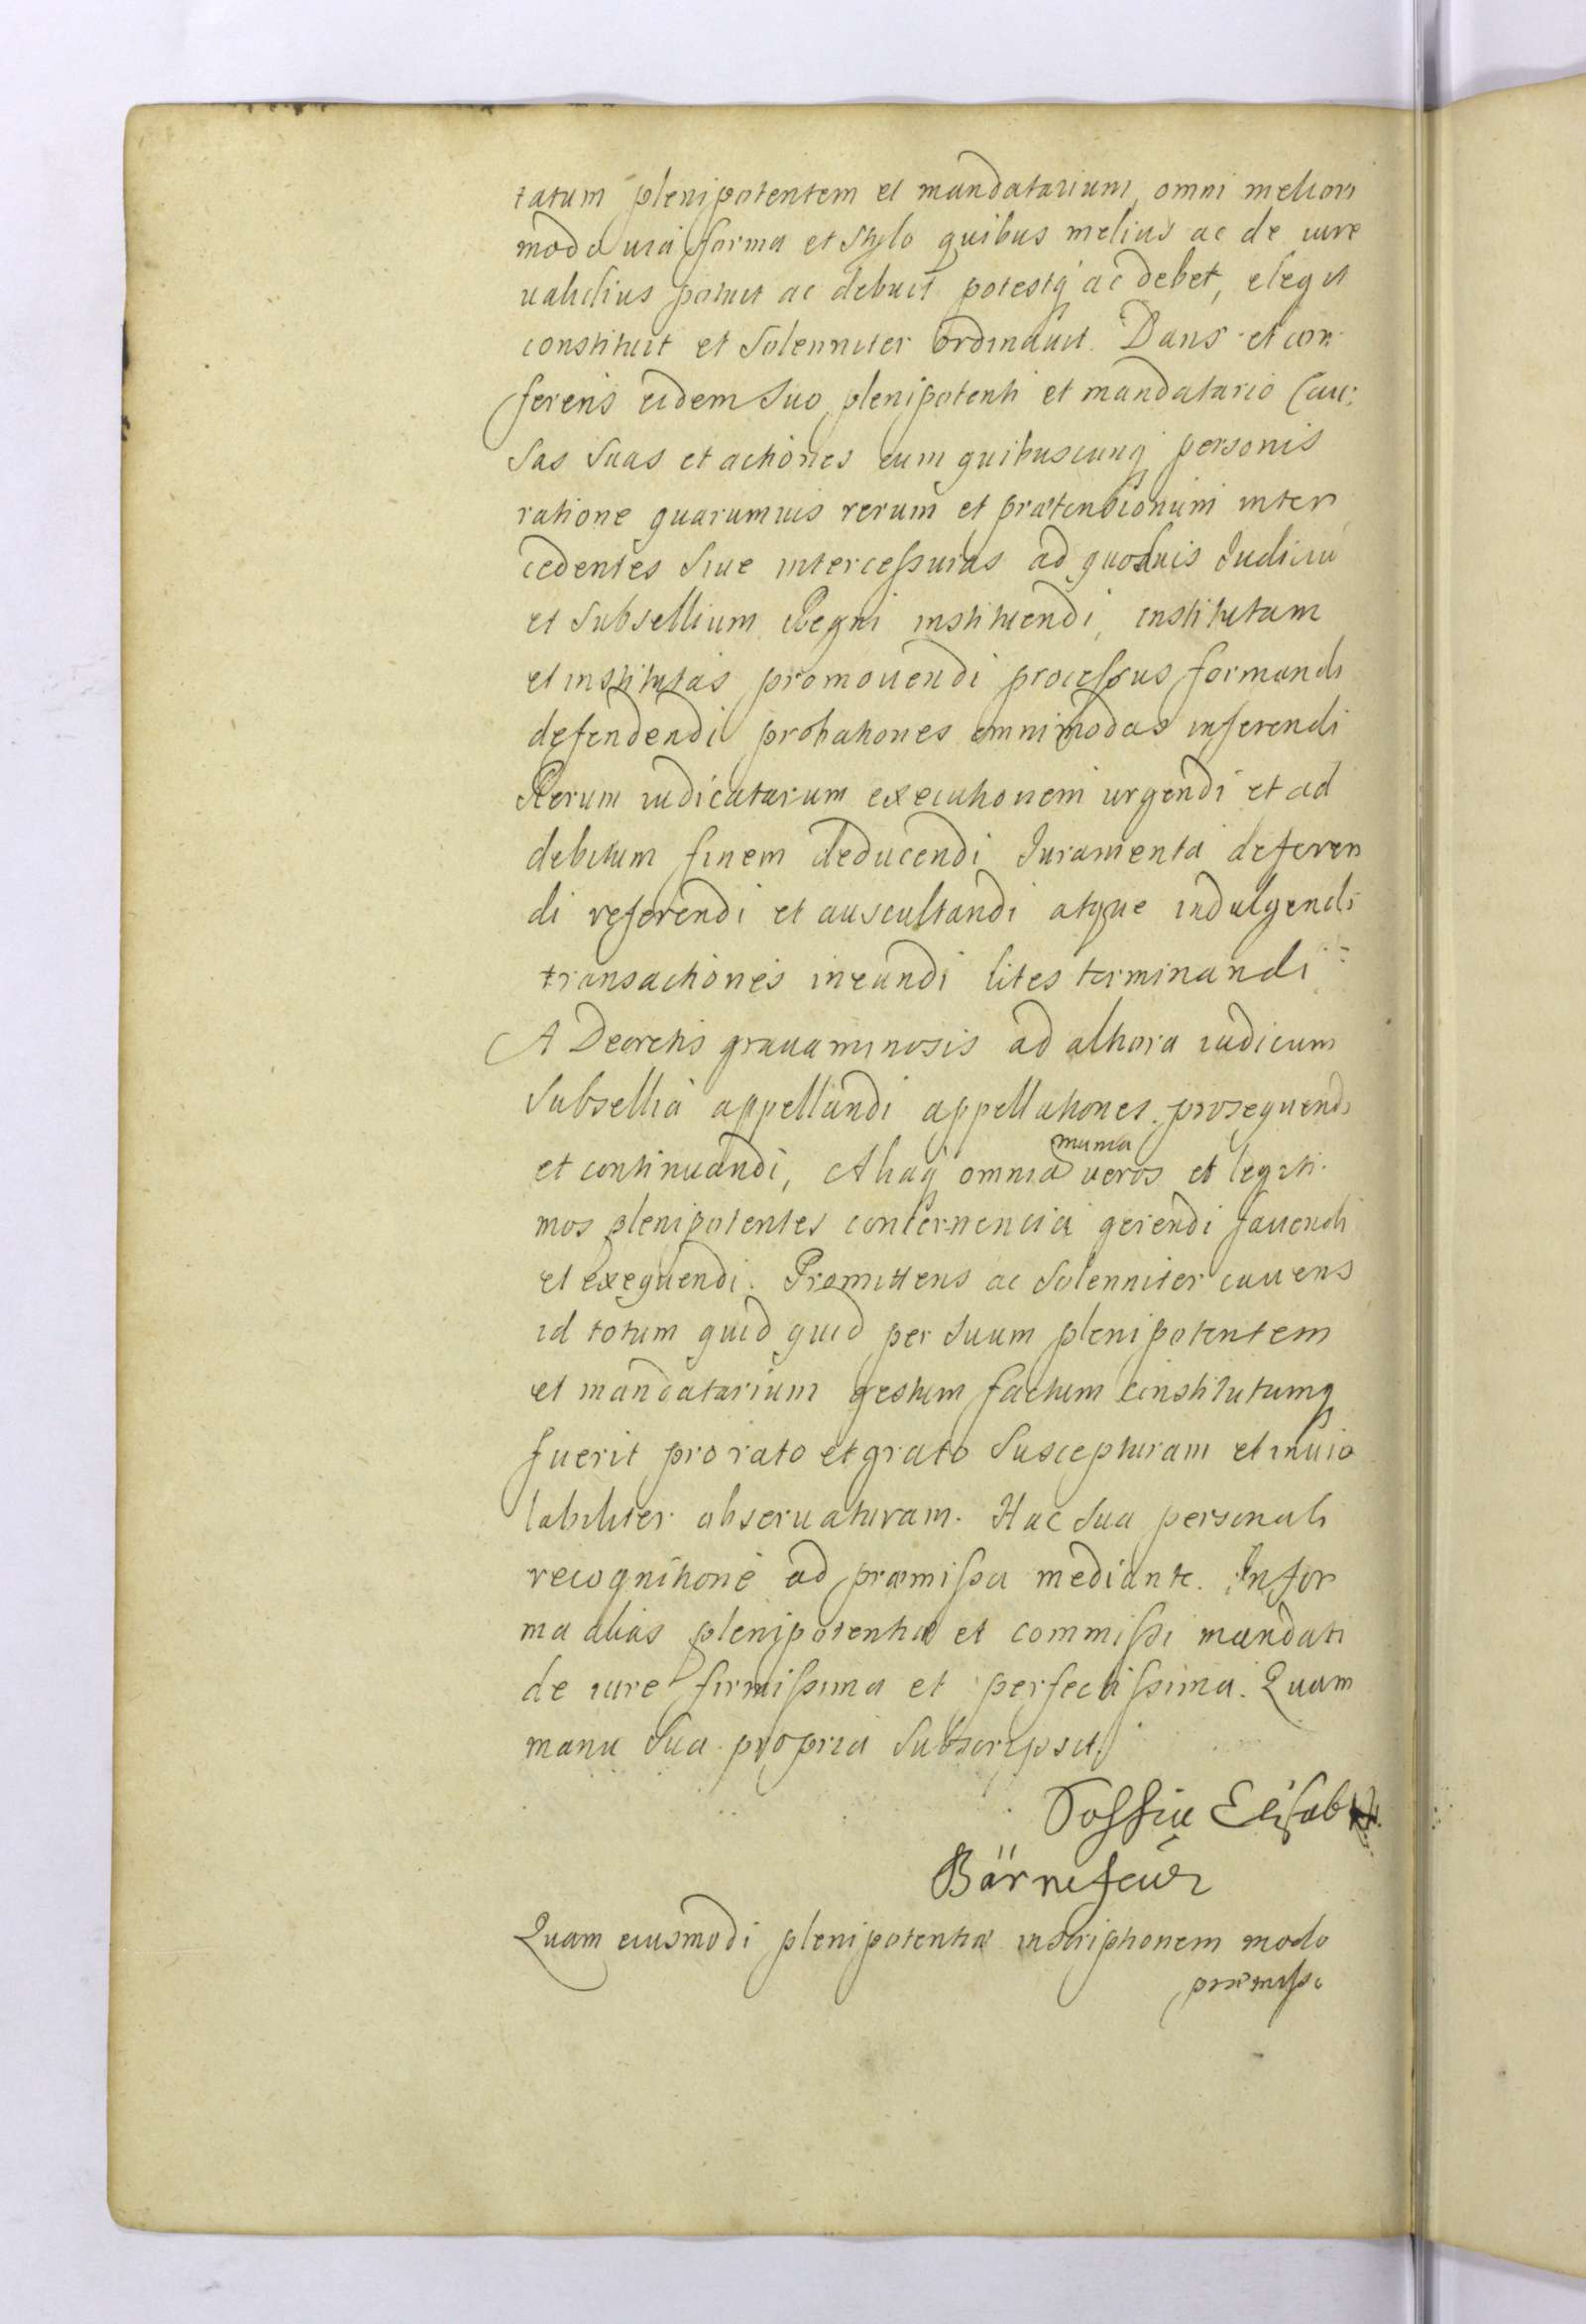 tatum plenipotentem et mandatarium, omni meliori
modo uia forma et Stylo quibus melius ac de iure
ualidius potuit ac debuit potestq ac debet, elegit
constituit et Solenniter ordinauit. Dans et con
ferens eidem Suo plenipotenti et mandatario Cau:
Sas Suas et actiones cum quibuscunq personis
ratione quarumuis rerum et prætensionum inter
cedentes Siue intercessuras ad quoduis Iudiciũ
et Subsellium Regni instituendi, institutam
et institutas promouendi processus formandi
defendendi probationes omnimodas inferendi
Rerum iudicatarum executionem urgendi et ad
debitum finem deducendi Iuramenta deferen
di referendi et auscultandi atque indulgendi
transactiones ineundi lites terminandi
A Decretis grauaminosis ad altiora iudicum
Subsellia appellandi appellationes prosequendi
et continuandi, Aliaq omnia munia ueros et legiti
mos plenipotentes concernencia gerendi fauendi
et exequendi. Promittens ac Solenniter cauens
id totum quid quid per Suum plenipotentem
et mandatarium gestum factum institutumq
fuerit pro rato et grato Suscepturam et inuio
labiliter obseruaturam. Hac Sua personali
recognitione ad præmissa mediante. In for
ma alias plenipotentiæ et commissi mandati
de iure firmissima et perfectissima. Quam
manu Sua propria Subscripsit.
Soffia Elisabet
Bärnefeür
Quam eiusmodi plenipotentiæ inscriptionem modo
præmisso